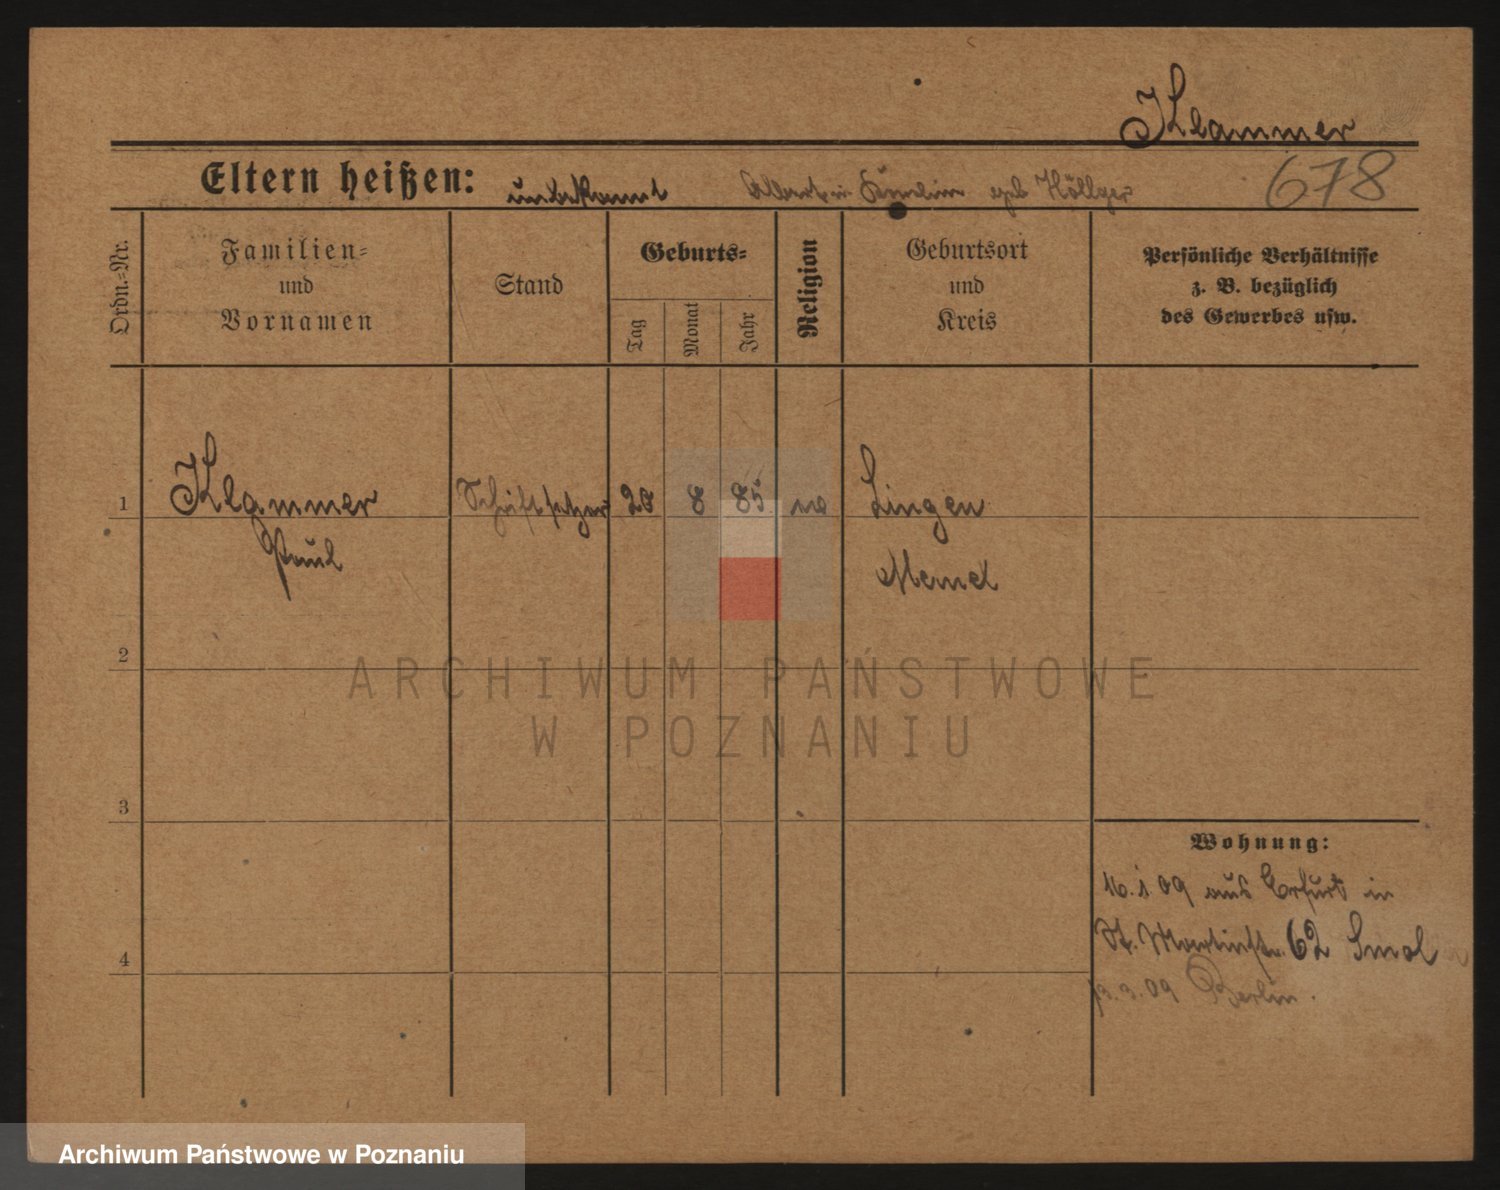 Klammer
Eltern heißen: unbekannt geb Höllger 678
Ordn.-Nr.
Familien-
und
Vornamen
Stand
Geburts-
Tag
Monat
Jahr
Religion
Geburtsort
und
Kreis
Persönliche Verhältnisse
z. B. bezüglich
des Gewerbes usw.
1 Klammer Schriftsetzer 8 85 Lingen
Paul Memel
2
ARCHIWUM PAŃSTWOWE
W POZNANIU
3
Wohnung:
16.1.09 aus Erfurt in
St. Martinstr. 62
4
13.3.09 Berlin.
Archiwum Państwowe w Poznaniu